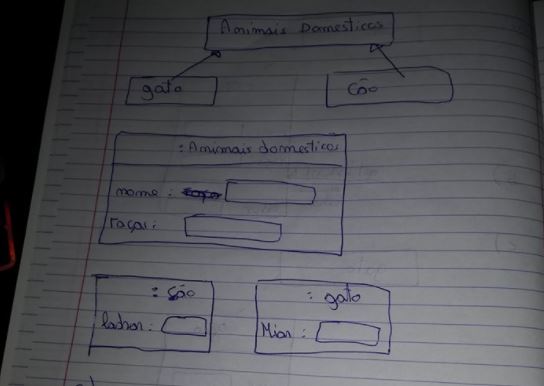 Animais Domesticos
gato
Cão
:Animais domesticos
nome:
raça:
: Cão
: gato
ladrar:
Miar: